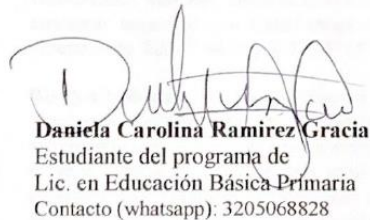 Daniela Carolina Ramirez Gracia
Estudiante del programa de
Lic. en Educación Básica Primaria
Contacto (whatsapp): 3205068828